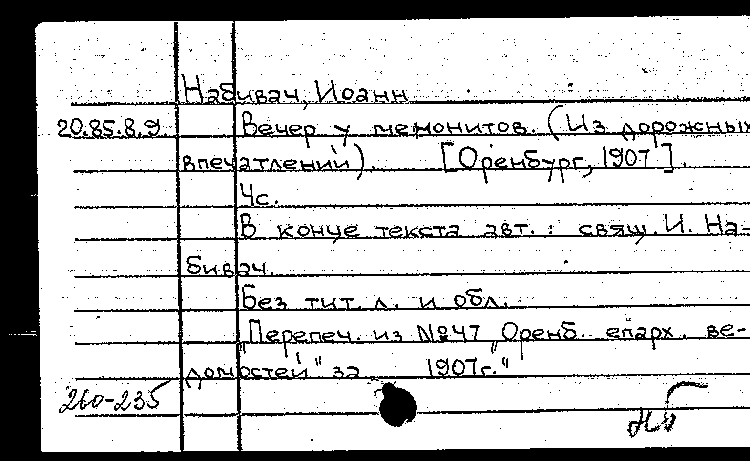 Набивач, Иоанн
20.85.8.9 Вечер у менонитов. (Из дорожных
впечатлений). [Оренбург, 1907].
4с.
В конце текста авт.: свящ. И. На-
бивач.
Без тит. л. и обл.
"Перепеч. из №47 "Оренб. епарх. ве-
домостей" за 1907г."
260-235